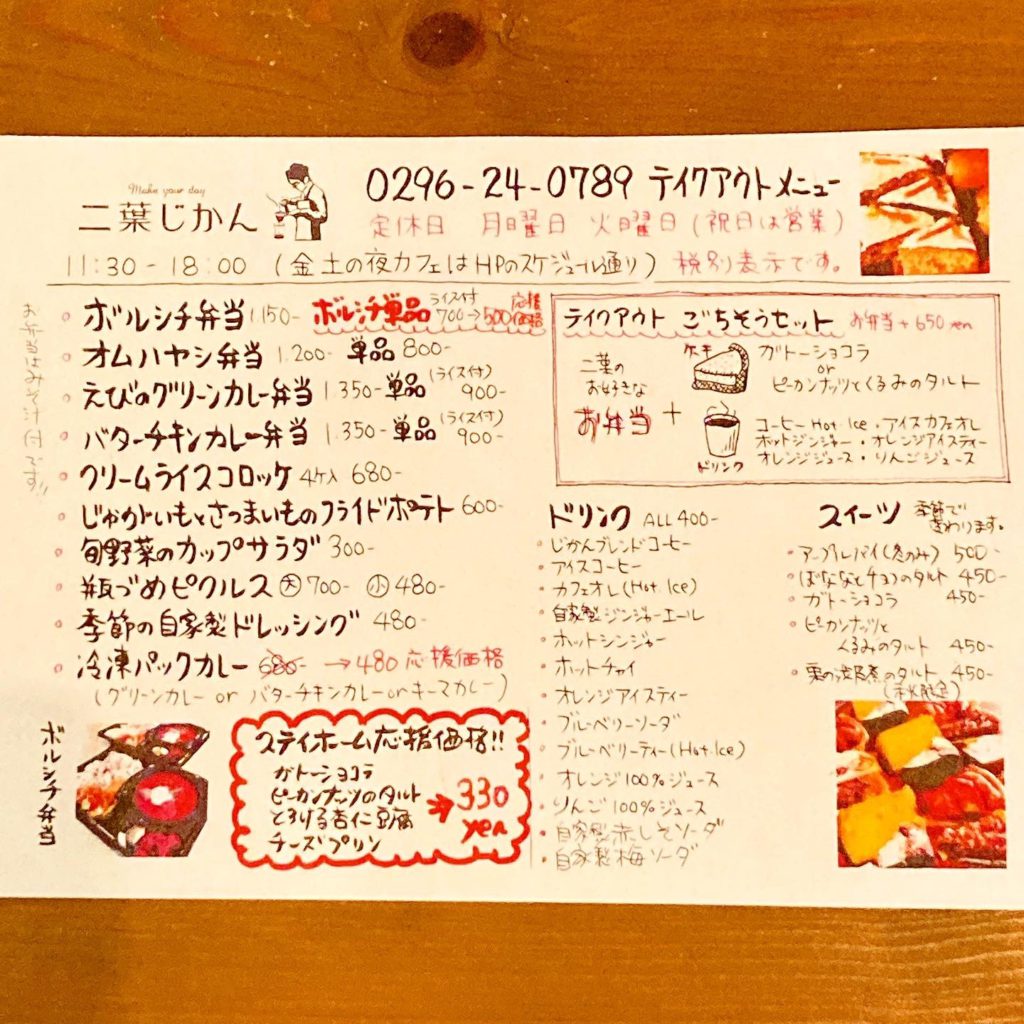 Make your day
二葉じかん
0296-24-0789 テイクアウトメニュー
定休日 月曜日 火曜日(祝日は営業)
11:30-18:00 (金土の夜カフェはHPのスケジュール通り) 税別表示です。
お弁当はみそ汁付です!!
・ボルシチ弁当 1.150- ボルシチ単品 ライス付 700→500 応援価格
・オムハヤシ弁当 1.200- 単品 800-
・えびのグリーンカレー弁当 1.350- 単品 (ライス付) 900-
・バターチキンカレー弁当 1.350- 単品 (ライス付) 900-
・クリームライスコロッケ 4ケ入 680-
・じゃがいもとさつまいものフライドポテト 600-
・旬野菜のカップサラダ 300-
・瓶づめピクルス 大 700- 小 480-
・季節の自家製ドレッシング 480-
・冷凍パックカレー 680- →480 応援価格
(グリーンカレー or バターチキンカレー or キーマカレー)
ボルシチ弁当
ステイホーム応援価格!!
ガトーショコラ
ピーカンナッツのタルト
とろける杏仁豆腐
チーズプリン
→330 yen
テイクアウト ごちそうセット お弁当+650 yen
二葉の
お好きな
お弁当
+
ケーキ
ガトーショコラ
or
ピーカンナッツとくるみのタルト
ドリンク
コーヒー Hot Ice・アイスカフェオレ
ホットジンジャー・オレンジアイスティー
オレンジジュース・りんごジュース
ドリンク ALL 400-
・じかんブレンドコーヒー
・アイスコーヒー
・カフェオレ(Hot Ice)
・自家製ジンジャーエール
・ホットジンジャー
・ホットチャイ
・オレンジアイスティー
・ブルーベリーソーダ
・ブルーベリーティー(Hot Ice)
・オレンジ100%ジュース
・りんご100%ジュース
・自家製赤しそソーダ
・自家製梅ソーダ
スイーツ 季節で変わります。
・アップルパイ(冬のみ) 500-
・ばななとチョコのタルト 450-
・ガトーショコラ 450-
・ピーカンナッツと
くるみのタルト 450-
・栗の渋皮煮のタルト 450-
(秋限定)